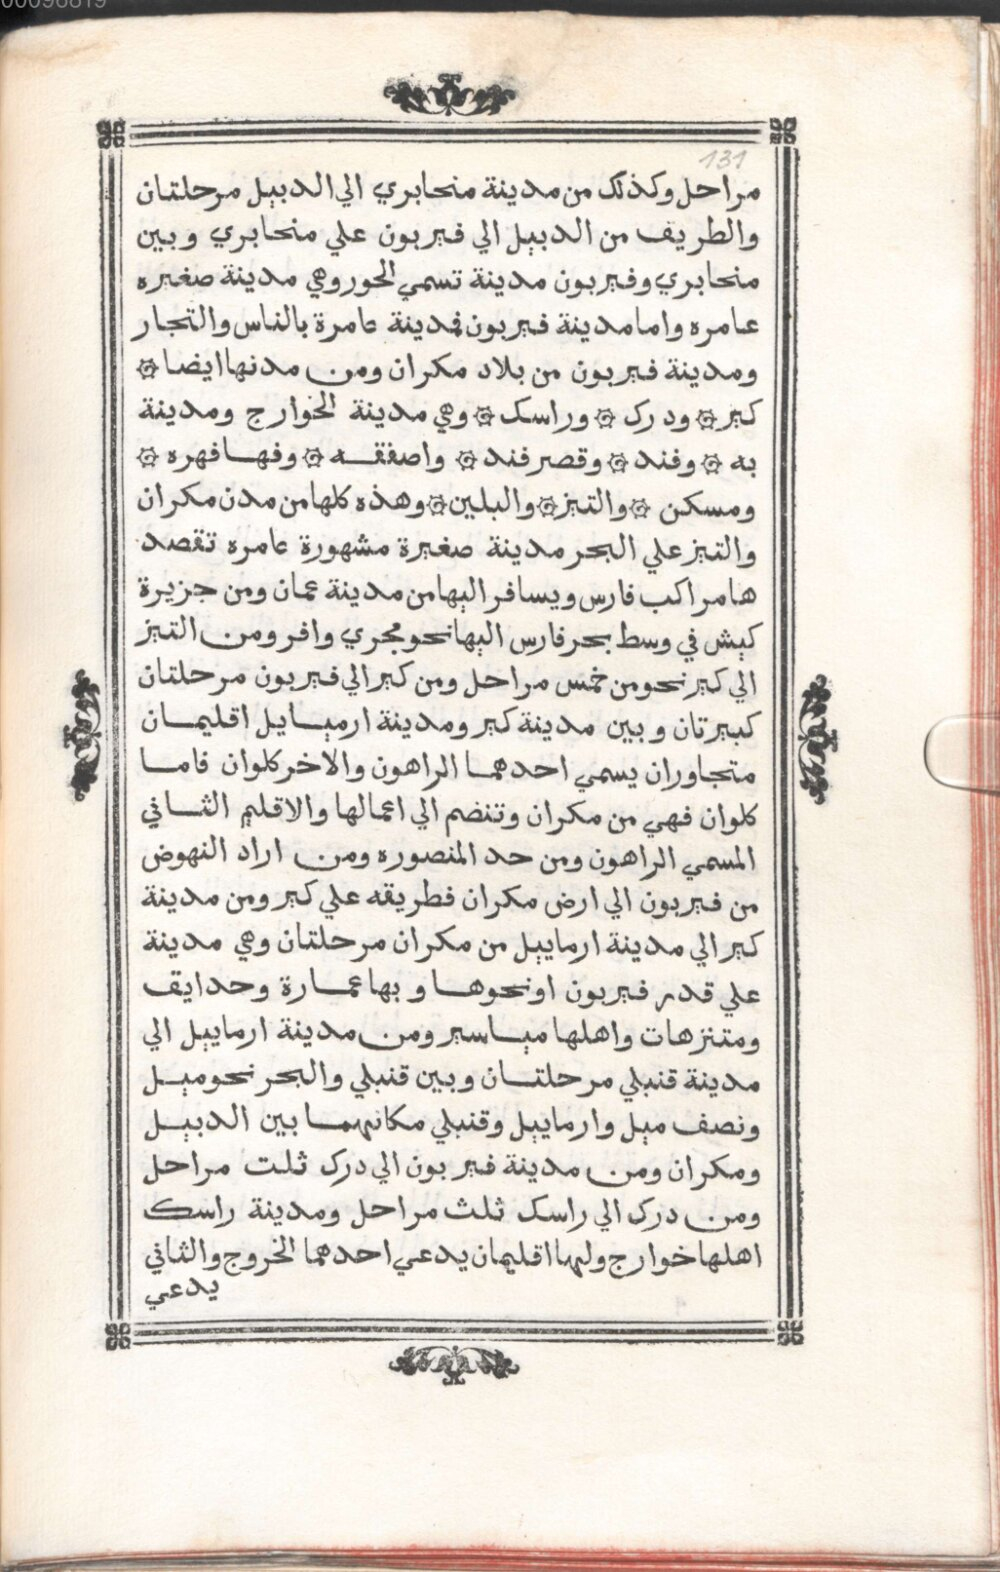 00096819
131
مراحل وكذلك من مدينة منحابري الي الدبيل مرحلتان
والطريف من الدبيل الي فيربون علي منحابري وبين
منحابري وفيربون مدينة تسمي الحور وهي مدينة صغيره
عامره واما مدينة فيربون فمدينة عامرة بالناس والتجار
ومدينة فيربون من بلاد مكران ومن مدنها ايضا ۞
كير ۞ ودرك ۞ وراسك ۞ وهي مدينة الخوارج ومدينة
به ۞ وفند ۞ وقصر فند ۞ واصفقه ۞ وفهافهره ۞
ومسكن ۞ والتيز ۞ والبلين ۞ وهذه كلها من مدن مكران
والتيز علي البحر مدينة صغيرة مشهورة عامره تقصد
ها مراكب فارس ويسافر اليها من مدينة عمان ومن جزيرة
كيش في وسط بحر فارس اليها نحو مجري وافر ومن التيز
الي كير نحو من خمس مراحل ومن كير الي فيربون مرحلتان
كبيرتان وبين مدينة كير ومدينة ارمبايل اقليمان
متجاوران يسمي احدهما الراهون والاخر كلوان فاما
كلوان فهي من مكران وتنضم الي اعمالها والاقليم الثاني
المسمي الراهون ومن حد المنصوره ومن اراد النهوض
من فيربون الي ارض مكران فطريقه علي كير ومن مدينة
كير الي مدينة ارماييل من مكران مرحلتان وهي مدينة
علي قدر فيربون او نحوها وبها عمارة وحدايق
ومتنزهات واهلها مياسير ومن مدينة ارماييل الي
مدينة قنبلي مرحلتان وبين قنبلي والبحر نحو ميل
ونصف ميل وارماييل وقنبلي مكانهما بين الدبيل
ومكران ومن مدينة فيربون الي درك ثلت مراحل
ومن درك الي راسك ثلث مراحل ومدينة راسك
اهلها خوارج ولها اقليمان يدعي احدهما الخروج والثاني
يدعي